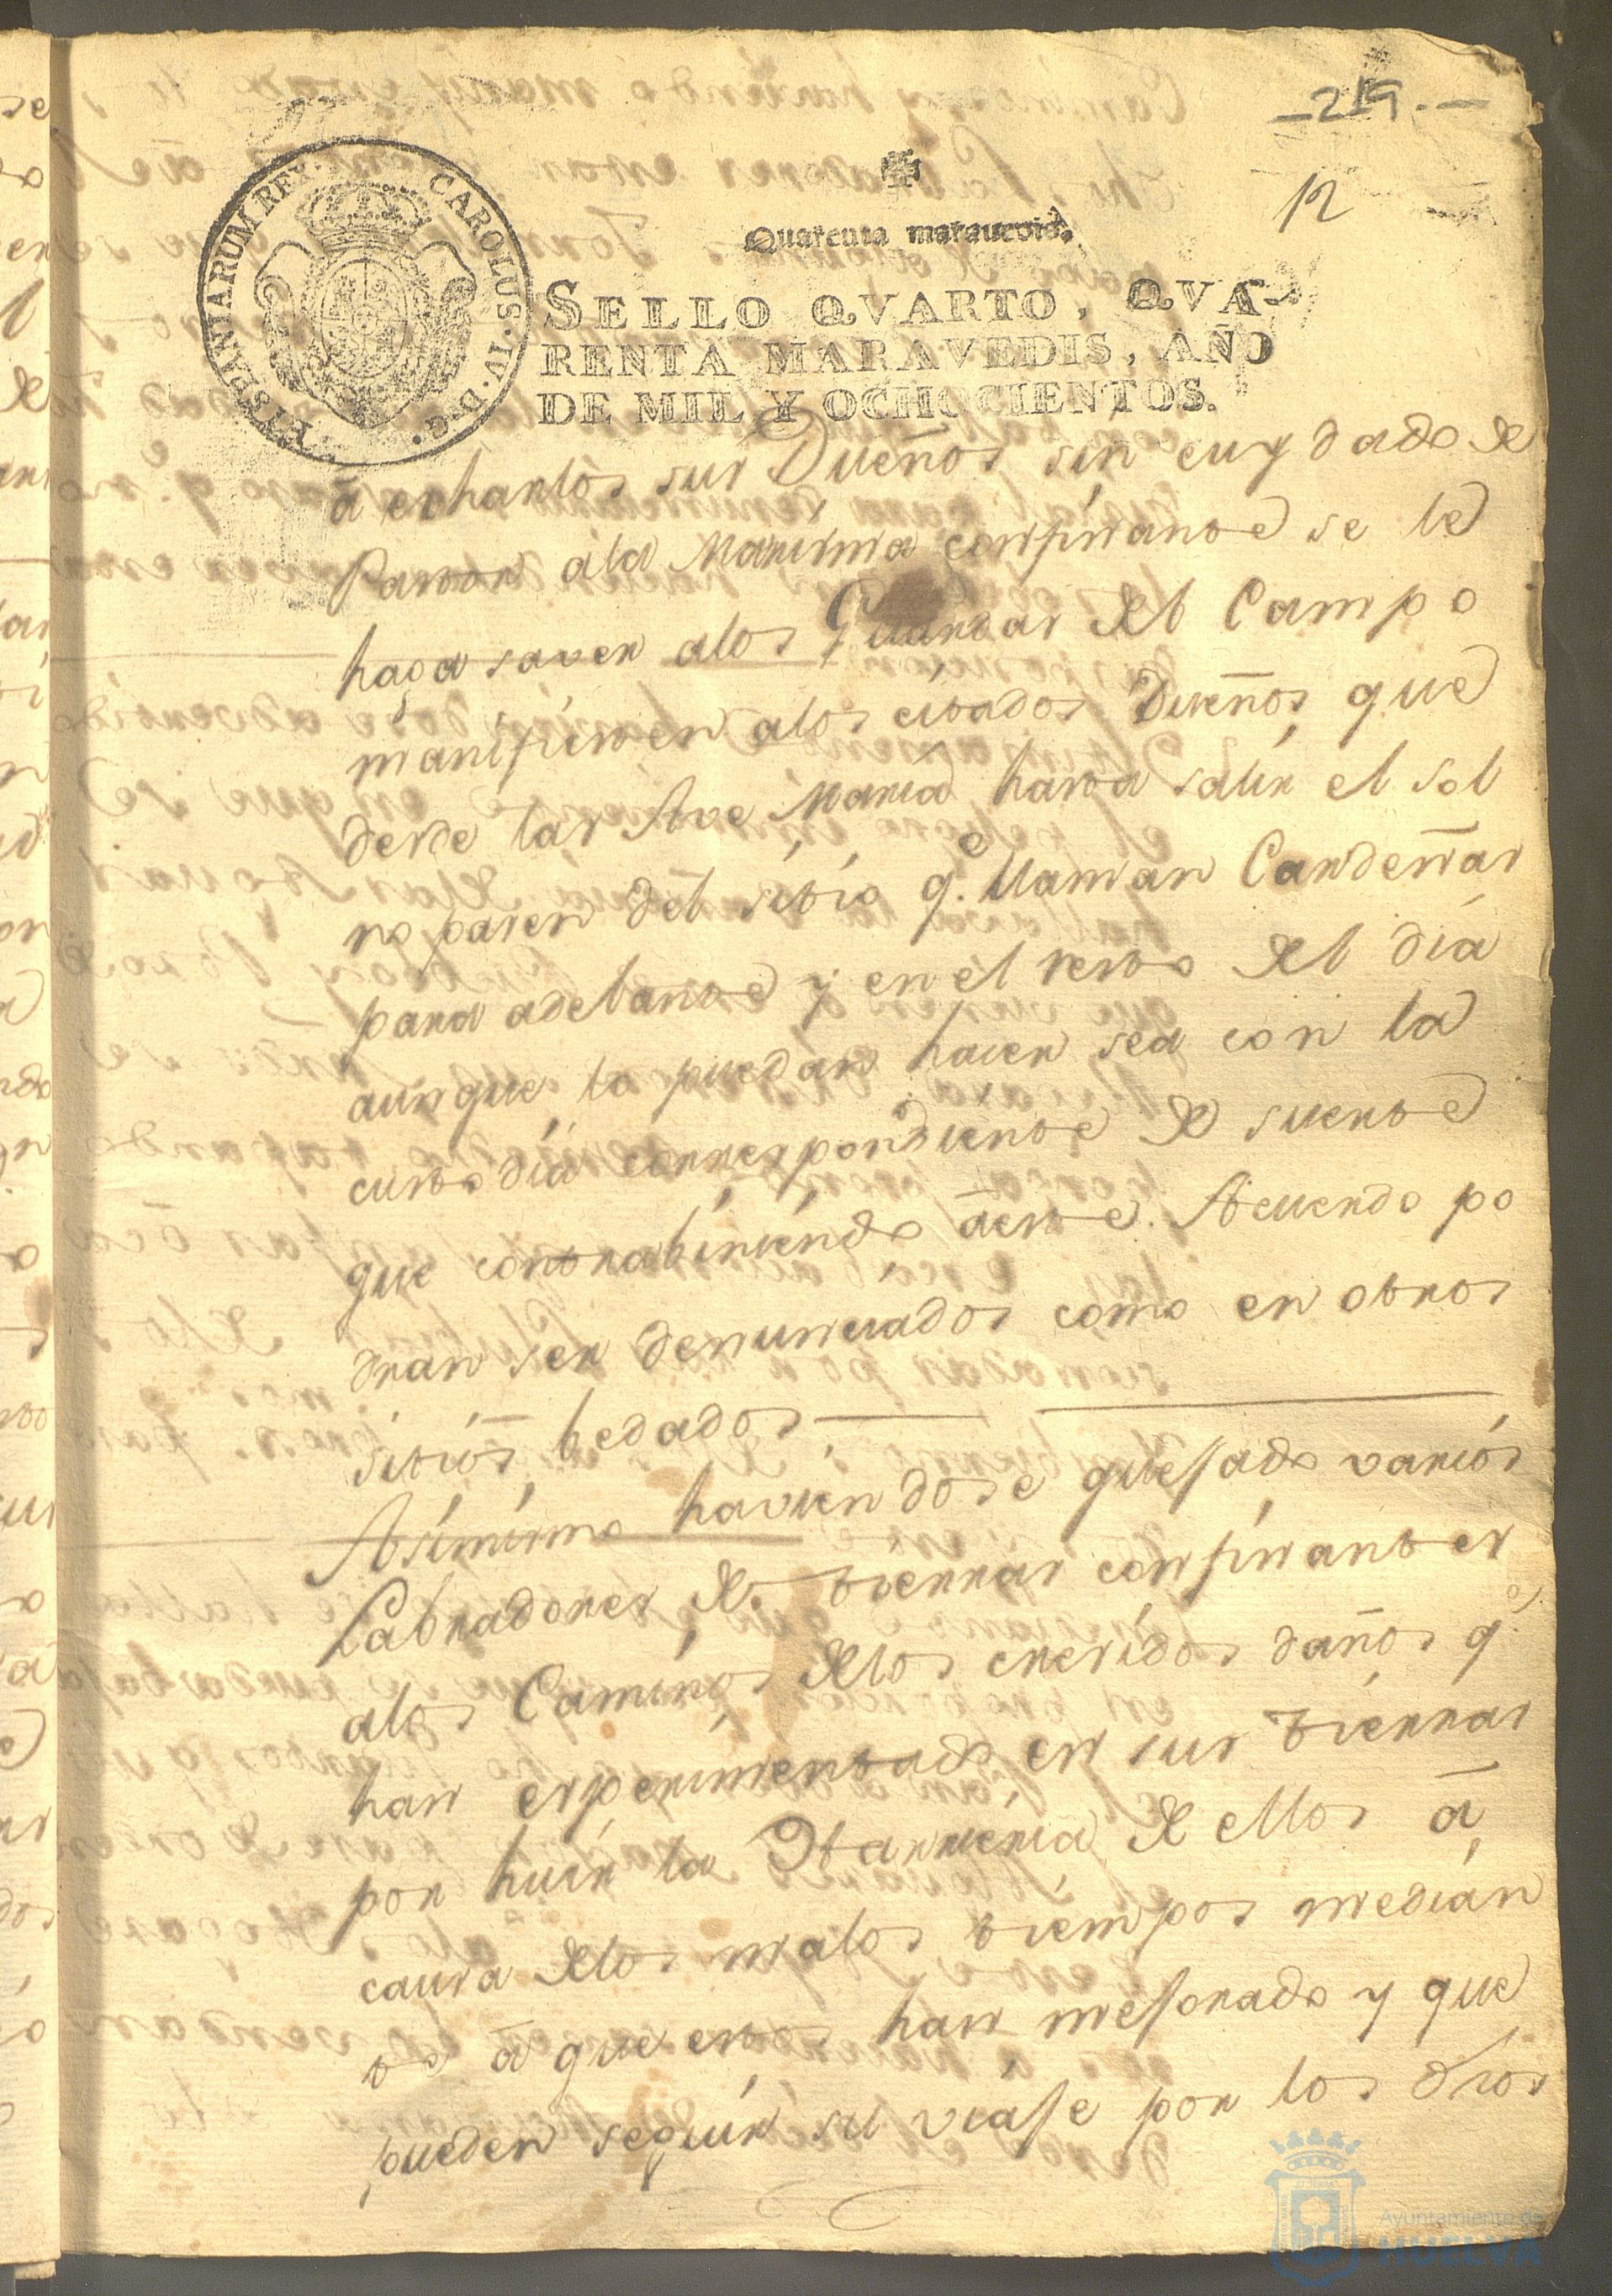 -219.-
12
Quarenta maravedis.
HISPANIARUM REX. CAROLUS. IV. D. G.
SELLO QVARTO, QVA-
RENTA MARAVEDIS, AÑO
DE MIL Y OCHOCIENTOS.
â echarlos sus Dueños sin cuydado de
Pastor ala Marisma confinante se le
haga saver alos Guardas del Campo
manifiesten alos citados Dueños, que
desde las Ave Maria hasta salir el sol
no pasen del sitio q.e llaman Cardeñas
para adelante y en el resto del dia
aunque lo puedan hacer sea con la
custodia correspondiente de suerte
que contrabiniendo âeste. Acuerdo po
dran ser denunciados como en otros
sitios bedados
Asimismo haviendose quejado varios
Labradores de tierras confinantes
alos Caminos delos crecidos daños q.e
han experimentado en sus tierras
por huir la Harrieria de ellos â
causa delos malos tiempos median
te â que estos han mejorado y que
pueden seguir su viaje por los dhos
Ayuntamiento de
HUELVA